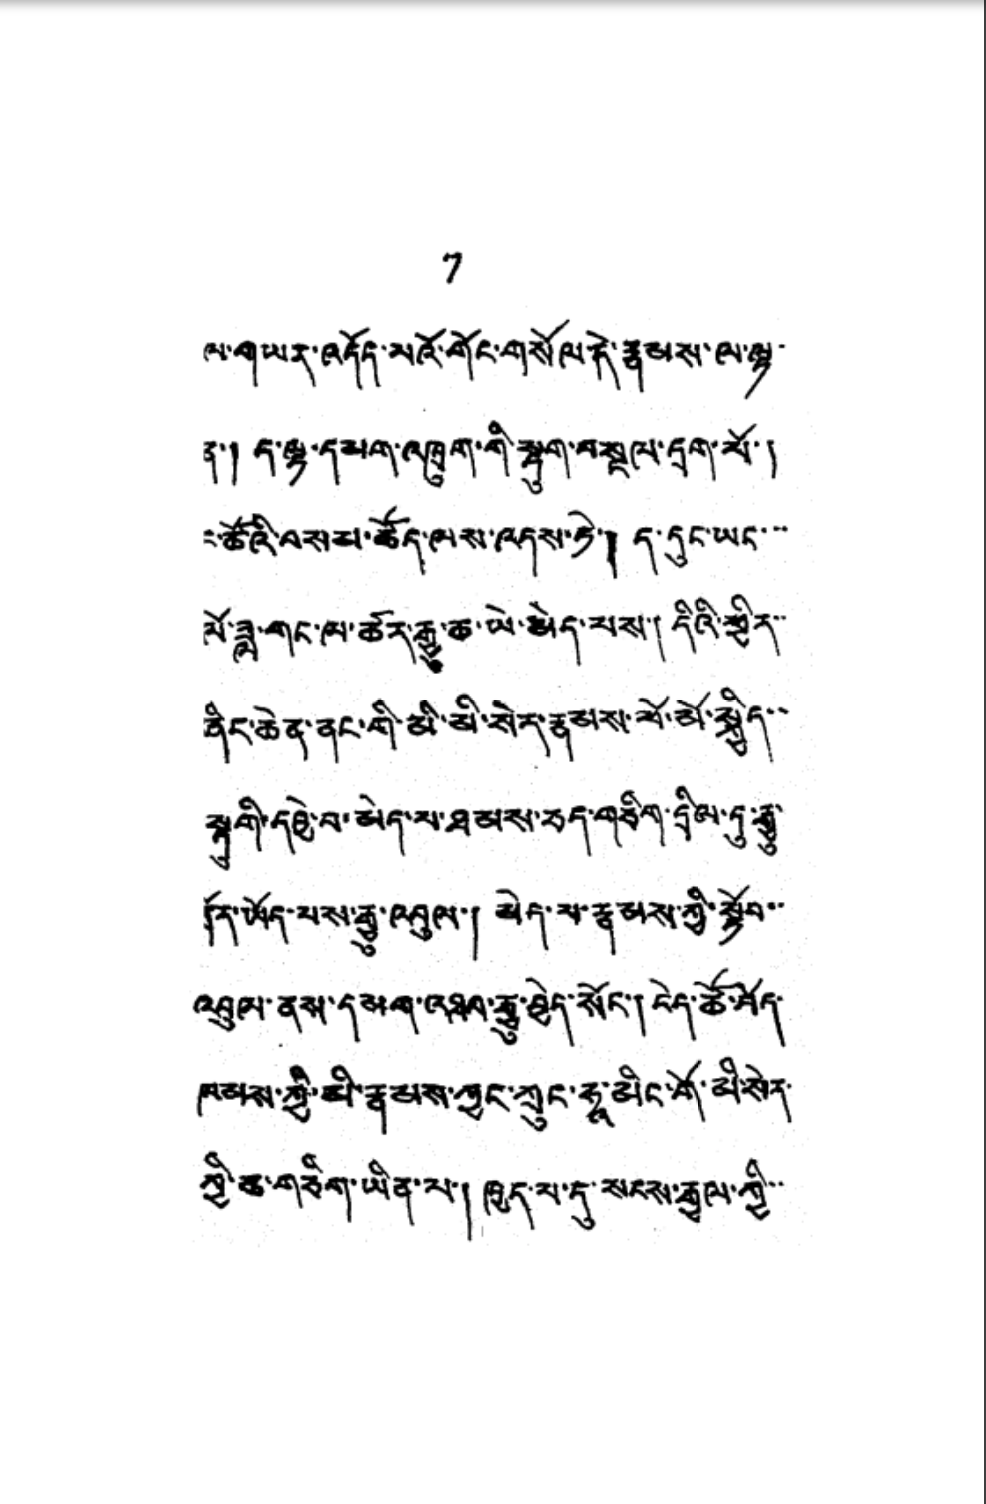 7
ལ་གཡར་འདོད་པའོ་གོང་གསོལ་ནེ་རྣམས་ལ་ལྟ་
ན་། ད་ལྟ་དམག་འཁྲུག་གི་སྡུག་བསྔལ་དྲག་པོ་།
ང་ཚོའི་བསམ་ཚོད་ལས་འདས་ཏེ་། ད་དུང་ཡང་
ལོ་ཟླ་གང་ལ་ཚར་རྒྱུ་ཆ་ཡེ་མེད་པས། དེའི་ཕྱིར་
ཞིང་ཆེན་ནང་གི་མི་མི་སེར་རྣམས་ཕོ་མོ་སྐྱིད་
སྡུག་གི་དབྱེ་བ་མེད་པ་ཐམས་ཅད་གཅིག་དྲིལ་དུ་རྒྱུ་
ནོར་ཡོད་པས་རྒྱུ་འབུལ་། མེད་པ་རྣམས་ཀྱི་སྟོབ་
འབུལ་ནས་དམག་འཐབ་རྒྱུ་བྱེད་སོང་། ངེད་ཚོ་བོད་
ཁམས་ཀྱི་མི་རྣམས་ཀྱང་ཀྲུང་ཧྭ་མིང་གོ་མི་སེར་
ཀྱི་ཆ་གཅིག་ཡིན་པ་། ཁྱད་པ་དུ་སངས་རྒྱལ་ཀྱི་